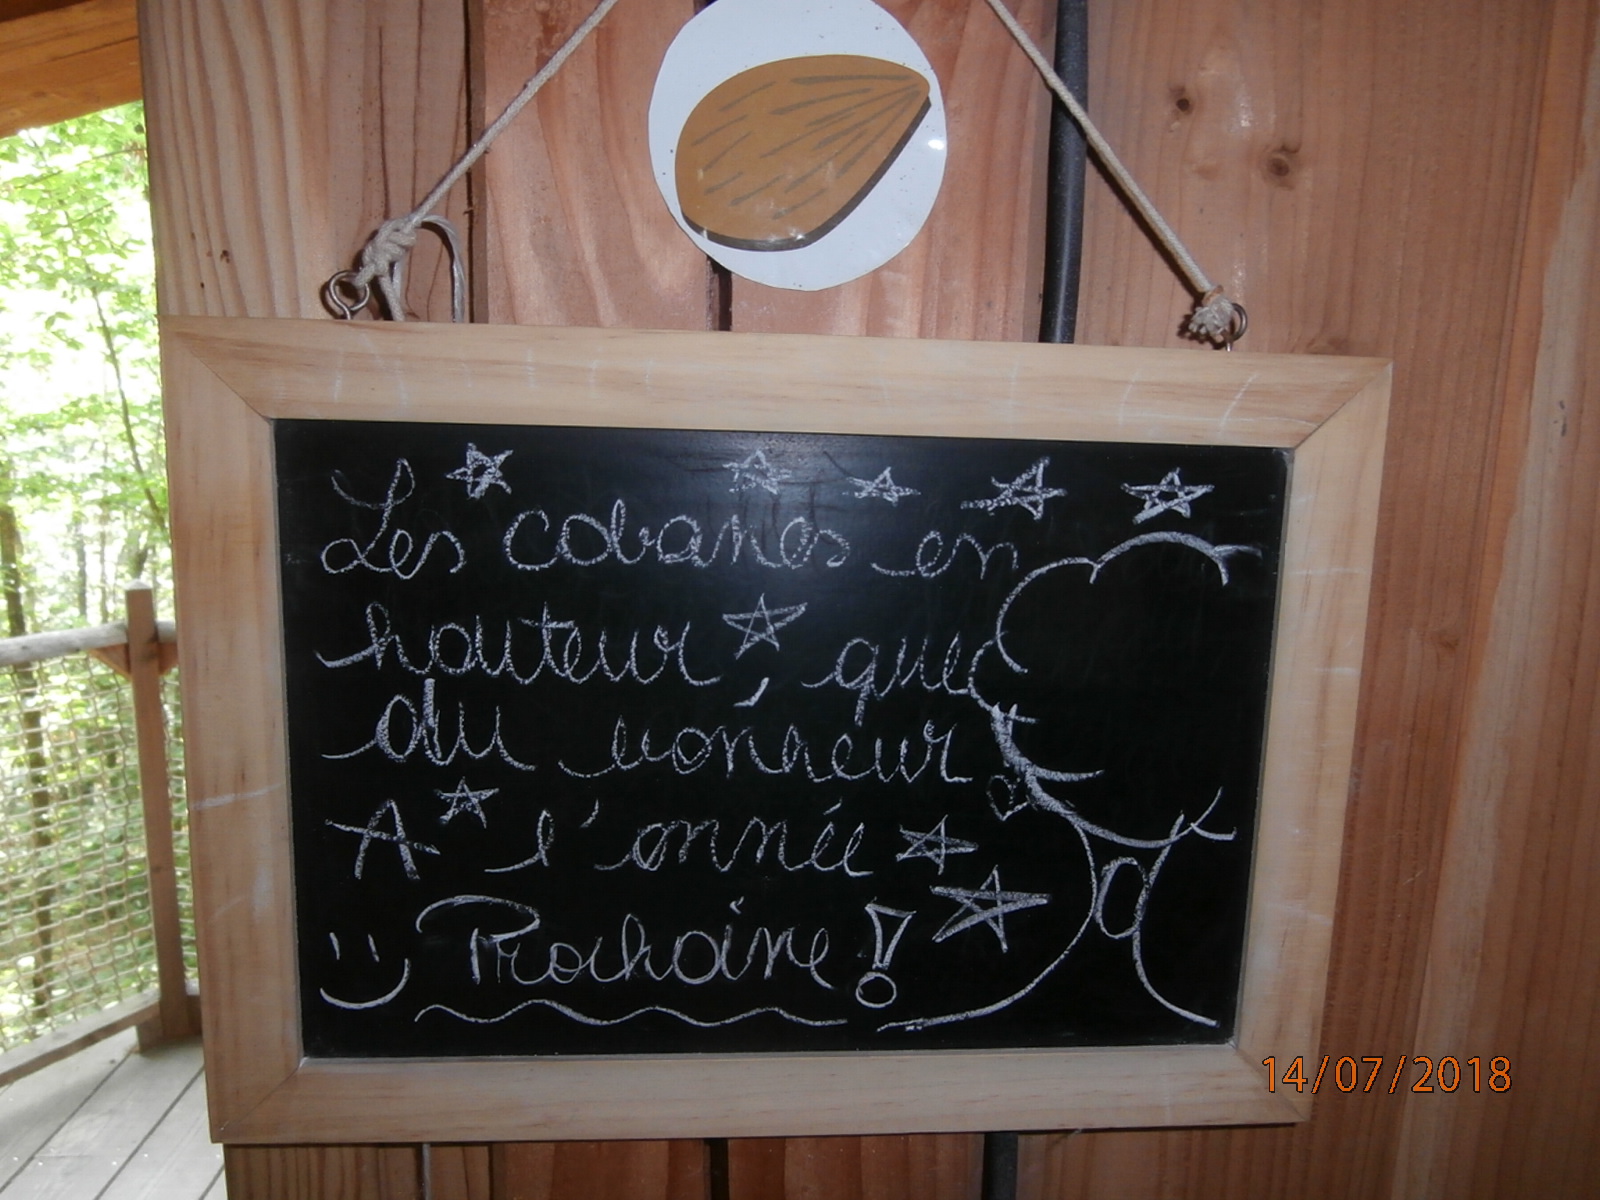 Les cabanes en
hauteur, que
du bonheur
A l'année
Prochaine !
14/07/2018